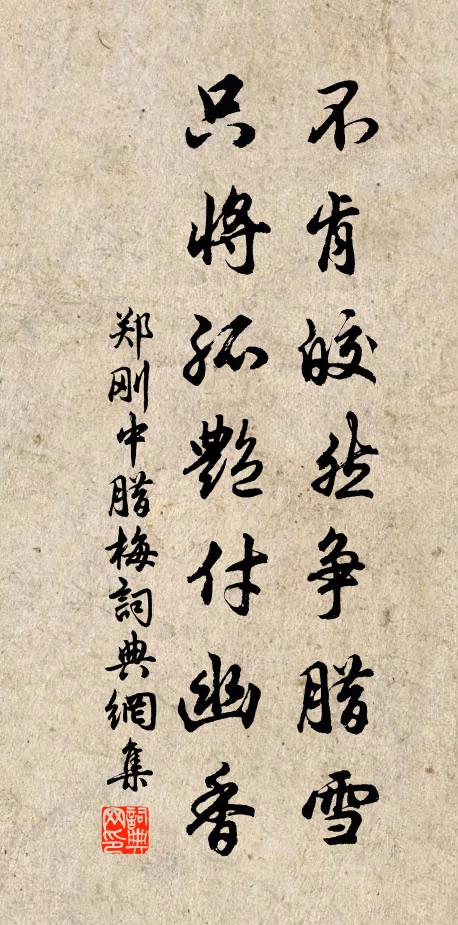 不肯皎然争腊雪
只将孤艶付幽香
郑刚中腊梅詞典網集
詞典网印